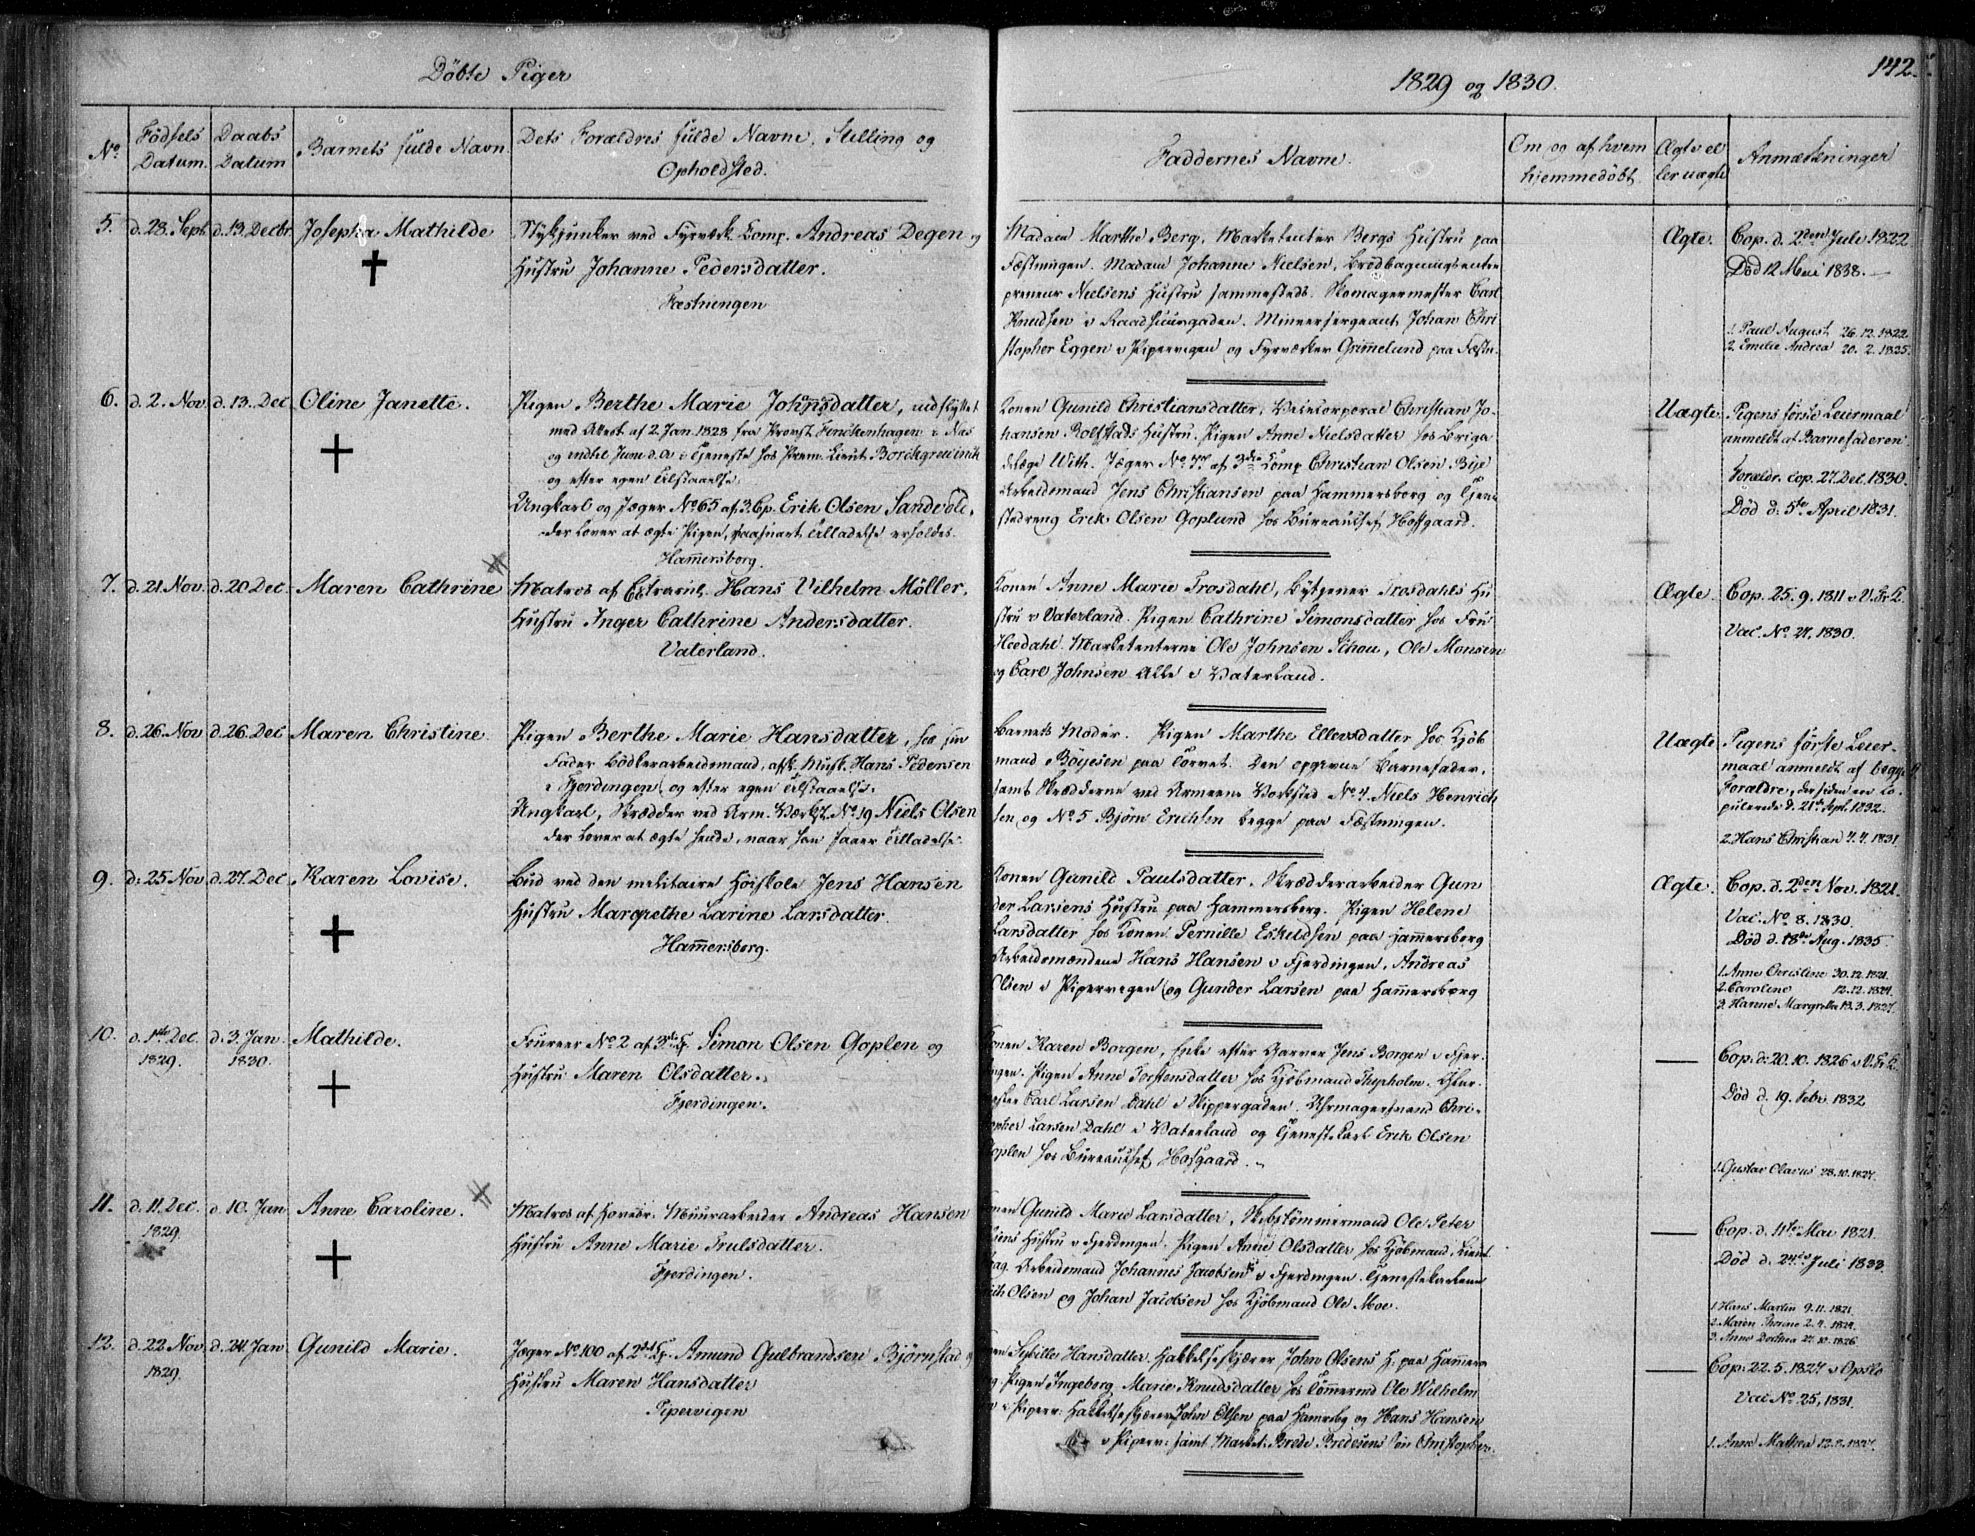 Döbte Piger
1829 og 1830.
142.
No.
Födsels Datum.
Daabs Datum
Barnets fulde Navn
Dets Forældres fulde Navne, Stilling og Opholdsted.
Faddernes Navne.
Om og af hvem hjemmedöbt.
Ægte eller uægte
Anmærkninger
5. d. 28. Sept. d. 13. Decbr. Josepha Mathilde
Stykjunker ved Fyrværk. Comp. Andreas Degen og
Hustru Johanne Pedersdatter.
Fæstningen
Madam Marthe Berg, Marketenter Bergs Hustru paa
Fæstningen. Madam Johanne Nielsen, Brödbagningsentre
preneur Nielsens Hustru sammesteds. Skomagermester Carl
Knudsen i Raadhuusgaden. Mineersergeant Johan Chri
stopher Eggen i Pipervigen og Fyrværker Grimelund paa Fæstn.
Ægte.
Cop. d. 2den Juli 1822
Död 12 Mai 1838.
1. Paul August 26.12.1822
2. Emilie Andrea 20.2.1825.
6. d. 2. Nov. d. 13. Dec. Oline Janette.
Pigen Berthe Marie Johnsdatter, indflyttet
med Attest af 2. Jan. 1828 fra Provst Finckenhagen i Næs
og indtil Juni d.A. i Tjeneste hos Prem. Lieut. Borchgrevink
og efter egen Tilstaaelse.
Ungkarl og Jæger No. 65 af 3. Cp. Erik Olsen Sandvold,
der lover at ægte Pigen, saasnart Tilladelse erholdes.
Hamersborg.
Konen Gunild Christiansdatter, Vicecorporal Christian Jo-
hansen Rolfstads Hustru. Pigen Anne Nielsdatter hos Briga
delæge With. Jæger No. 77 af 3die Comp. Christian Olsen Bye
Arbeidsmand Jens Christiansen paa Hammersborg og Tjene
stedreng Erik Olsen Goplund hos Bureauchef Hoffgaard.
Uægte.
Pigens förste Leiermaal
anmeldt af Barnefaderen.
Forældr. cop. 27. Dec. 1830.
Död d. 5te April 1831.
7. d. 21. Nov. d. 20 Dec. Maren Cathrine
Matros af Extrarul. Hans Vilhelm Möller,
Hustru Inger Cathrine Andersdatter.
Vaterland.
Konen Anne Marie Trosdahl, Bytjener Trosdahls Hu
stru i Vaterland. Pigen Cathrine Simonsdatter hos Fru
Heedahl. Marketenterne Ole Johnsen Schou, Ole Monsen
og Carl Johnsen Alle i Vaterland.
Ægte.
Cop. 25.9.1811 i V.Fr.K.
Vac. No. 27, 1830.
8. d. 26. Nov. d. 26. Dec. Maren Christine.
Pigen Berthe Marie Hansdatter, hos sin
Fader Bödkerarbeidsmand, afsk. Musk. Hans Pedersen
i Fjerdingen, og efter egen Tilstaaelse.
Ungkarl, Skrædder ved Arm. Værkst. No. 19 Niels Olsen
der lover at ægte hende, naar han faaer Tilladelse.
Barnets Moder. Pigen Marthe Ellevsdatter hos Kjöb
mand Böyesen paa Torvet. Den opgivne Barnefader,
samt Skrædderne ved Armeens Værksted No. 4 Niels Henrich
sen og No. 5 Björn Erichsen begge paa Fæstningen.
Uægte
Pigens förste Leier-
maal anmeldt af begge
Foreldre, der siden ere Co-
pulerede d. 21 Sept. 1832.
2. Hans Christian 4.4.1831
9. d. 25 Nov. d. 27. Dec. Karen Lovise.
Bud ved den militaire Höiskole Jens Hansen
Hustru Margrethe Larine Larsdatter.
Hamersborg.
Konen Gunild Paulsdatter, Skrædderarbeider Gun
der Larsens Hustru paa Hammersberg. Pigen Helene
Larsdatter hos Konen Pernille Eskildsen paa Hammersborg
Arbeidsmændene Hans Hansen i Fjerdingen, Andreas
Olsen i Pipervigen og Gunder Larsen paa Hammersborg
Ægte.
Cop. d. 2den Nov. 1821.
Vac. No. 8. 1830.
Död d. 18de Aug. 1835
1. Anne Christine 30.12.1821.
2. Caroline 12.12.1824.
3. Hanne Margrethe 13.3.1827.
10. d. 1ste Dec. 1829. d. 3. Jan. 1830. Mathilde.
Foureer No. 2 af 3die Cp. Simon Olsen Goplen og
Hustru Maren Olsdatter.
Fjerdingen.
Konen Karen Borgen, Enke efter Garver Jens Borgen i Fjer-
ingen. Pigen Anne Torstensdatter hos Kjöbmand Thyrholm.
ester Carl Larsen Dahl i Skippergaden. Uhrmagersvend Chri-
opher Larsen Dahl i Vaterland og Tjenestekarl Erik Olsen
Goplen hos Bureauchef Hofgaard.
Cop. d. 20.10.1826 i V.Fr.K.
Död d. 19. Febr. 1832
1. Gustav Olavus 28.10.1827.
11. d. 11. Dec. 1829. d. 10. Jan. Anne Caroline.
Matros af Hovedr. Muurarbeider Andreas Hansen
Hustru Anne Marie Trulsdatter.
Fjerdingen.
onen Gunild Marie Larsdatter, Skibstömmermand Ole Peter
sens Hustru i Fjerdingen. Pigen Anne Olsdatter hos Kjöbmand, Lieut.
ag. Arbeidsmand Johannes Jacobsen i Fjerdingen. Tjenestekarlene
rich Olsen og Johan Jacobsen hos Kjöbmand Ole Moe.
Cop. d. 11te Mai 1821.
Död d. 24de Juli 1833.
1. Hans Martin 9.11.1821.
2. Maren Thorine 2.4.1824.
3. Anne Dorthea 27.10.1826
12. d. 22. Nov. 1829. d. 24. Jan. Gunild Marie.
Jæger No. 100 af 2den Cp. Amund Gulbrandsen Björnstad og
Hustru Maren Hansdatter
Pipervigen
en Sibille Hansdatter, Hakkelseskjærer John Olsens H. paa Hammers
g Pigen Ingeborg Marie Knudsdatter hos Tömmermd Ole Wilhelm
i Piperv. Hakkelseskjærer John Olsen paa Hamrsbg og Hans Hansen
i Piperv. samt Market. Brede Bredesens Sön Christopher.
Cop. 22.5.1827 i Opslo
Vac. No. 25, 1831.
1. Anne Mathea